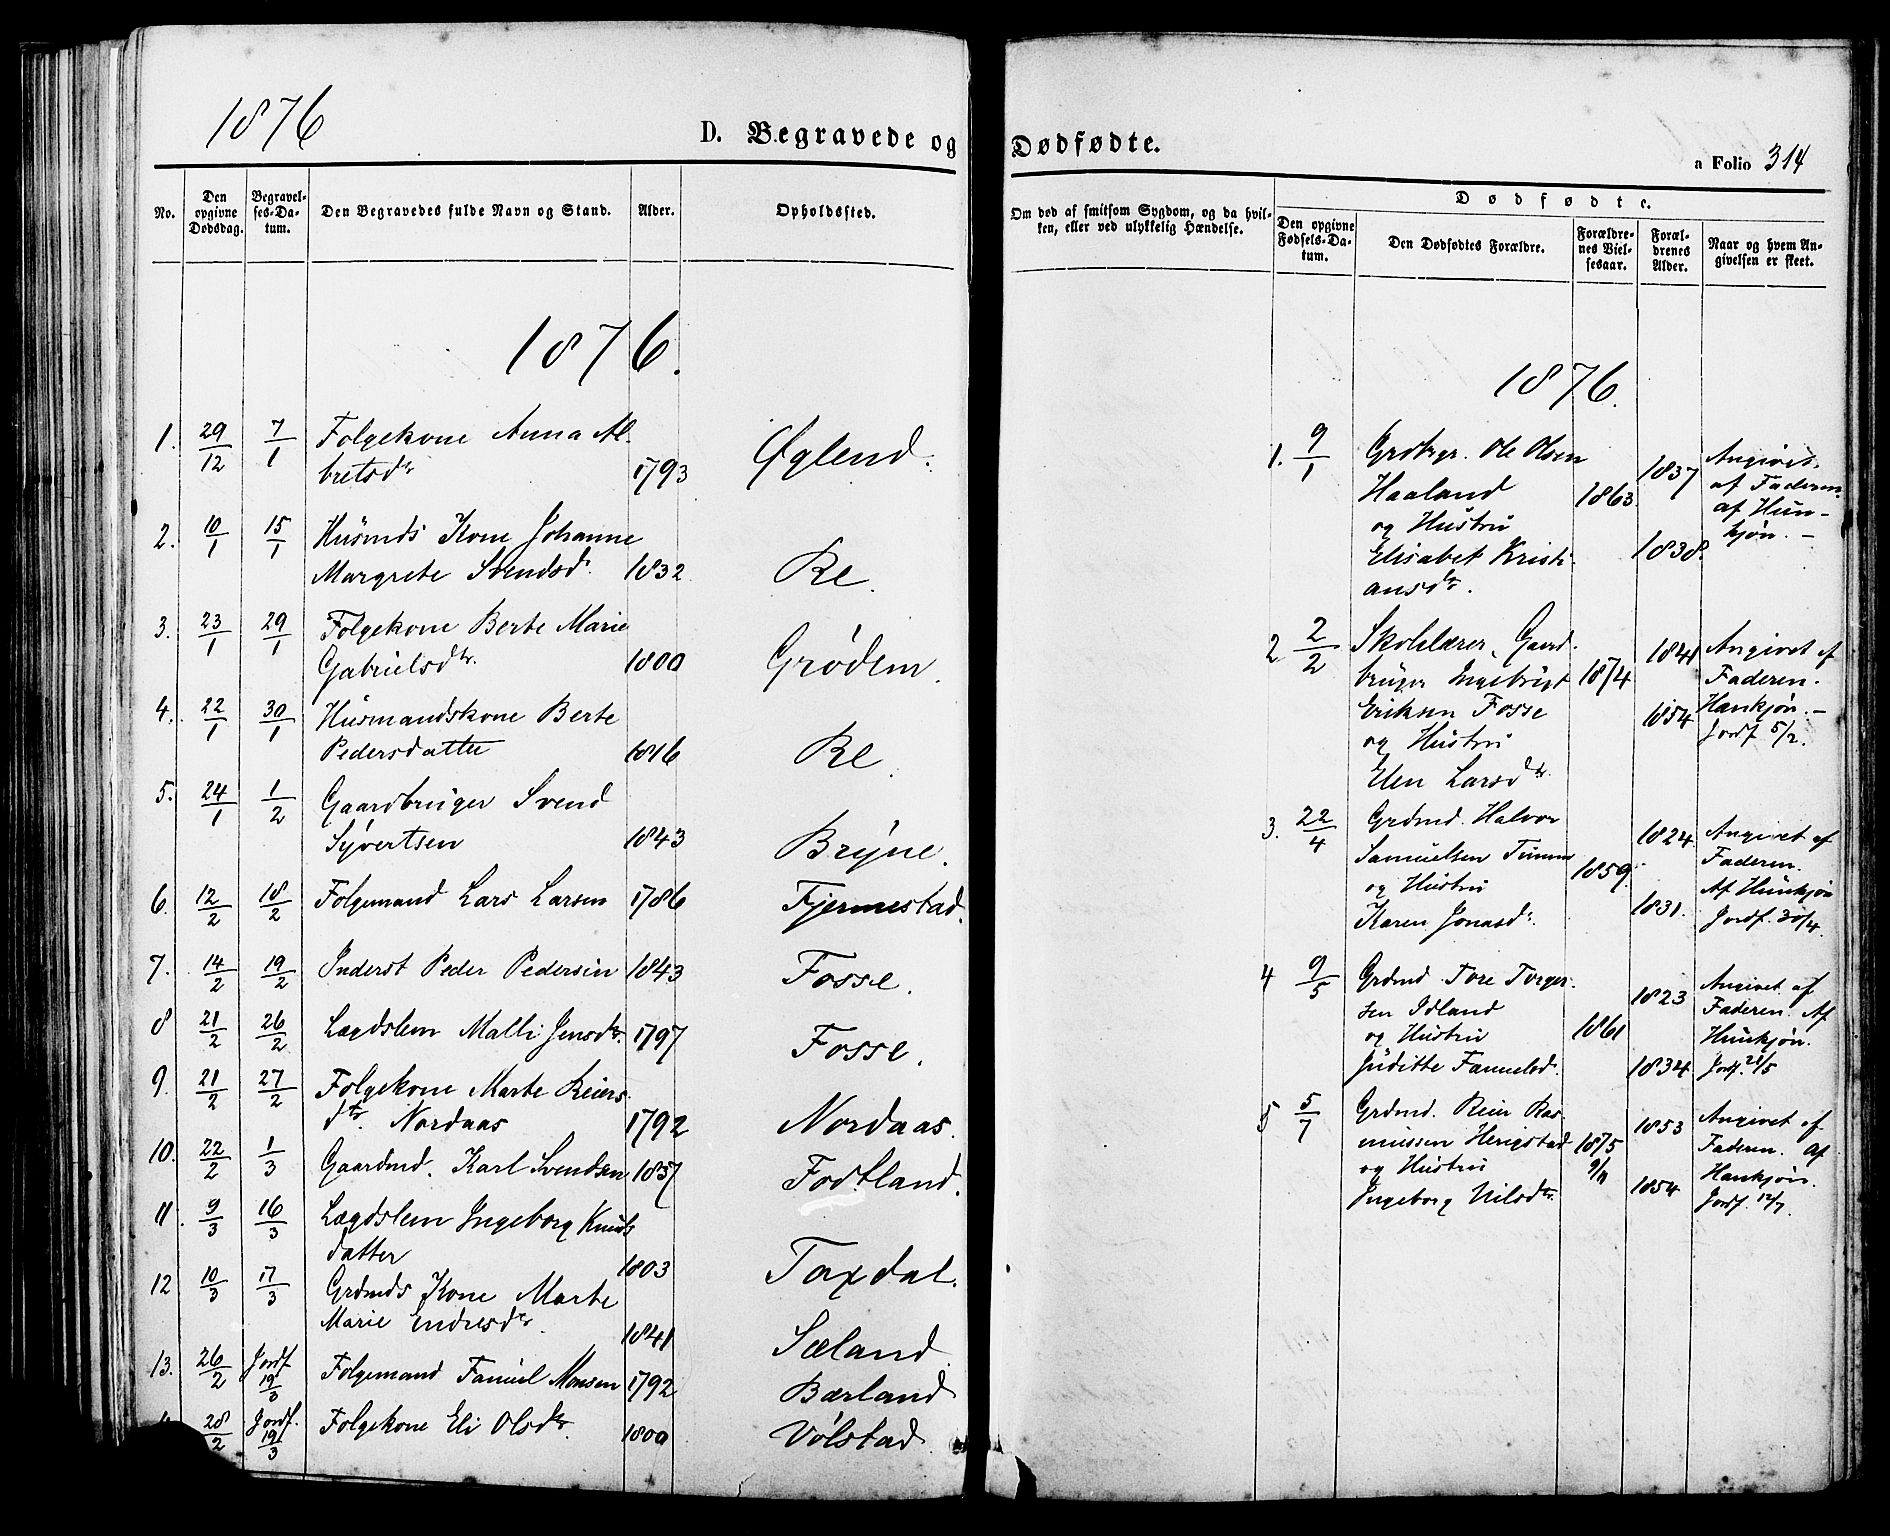 1876
D. Begravede og
No.
Den opgivne Dødsdag.
Begravelses-Datum.
Den Begravedes fulde Navn og Stand.
Alder.
Opholdssted.
1876.
1. 29/12 7/1 Folgekone Anna Al-
bretsdr 1793 Øglend.
2. 10/1 15/1 Husmds Kone Johanne
Margrete Svendsdr. 1832 Re.
3. 23/1 29/1 Folgekone Berte Marie
Gabrielsdtr. 1800 Grødem.
4. 22/1 30/1 Husmandskone Berte
Pedersdatter 1816 Re.
5. 24/1 1/2 Gaardbruger Svend
Syvertsen 1843 Bryne.
6. 12/2 18/2 Folgemand Lars Larsen 1786 Fjermestad.
7. 14/2 19/2 Inderst Peder Pedersen 1843 Fosse.
8 21/2 26/2 Lægdslem Malli Jensdtr. 1797 Fosse.
9. 21/2 27/2 Folgekone Marte Reiers-
dtr. Nordaas 1792 Nordaas.
10. 22/2 1/3 Gaardmd. Karl Svendsen 1837 Fodtland.
11. 9/3 16/3 Lægdslem Ingeborg Knuds
datter 1803 Taxdal.
12 10/3 17/3 Grdmds Kone Marte
Marie Endresdtr. 1841 Sæland
13. 26/2 Jordf 19/3 Folgemand Tamiel Monsen 1792 Bærland
28/2 Jordf. 19/3 Folgekone Eli Olsdtr. 1800 Vølstad
Dødfødte.
a Folio 314
Om død af smitsom Sygdom, og da hvil-
ken, eller ved ulykkelig Hændelse.
Dødfødte.
Den opgivne Fødsels-Datum.
Den Dødfødtes Forældre.
Forældrenes Vielsesaar.
Forældrenes Alder.
Naar og hvem Angivelsen er skeet.
1876.
1. 9/1 Grdbrgr. Ole Olsen 1837 Angivet
Haaland 1863 af Faderen.
og Hustru af Hun-
Elisabet Kristi- 1838. kjøn. –
ansdtr.
2 2/2 Skolelærer, Gaard- 1841 Angivet af
bruger Ingebrigt 1874 Faderen.
Eriksen Fosse 1854 Hankjøn. –
og Hustru Jordf 5/2.
Elen Larsdtr.
3. 22/4 Grdmd. Halvor 1824 Angivet af
Samuelsen Timm 1859. Faderen.
og Hustru Af Hunkjøn
Karen Jonasdr. 1831. Jordf. 30/4.
4 9/5 Grdmd Tore Torger- 1823 Angivet af
sen Idland Faderen. Af
og Hustru 1861 Hunkjøn.
Juditte Tamielsd. 1834 Jordf. 21/5
5 5/7 Grdmd. Reier Ras- 1853 Angivet af
mussen Herigstad 1875 Faderen. Af
og Hustru 9/11 Hankjøn.
Ingeborg Nilsdtr. 1854 Jordf. 12/7.